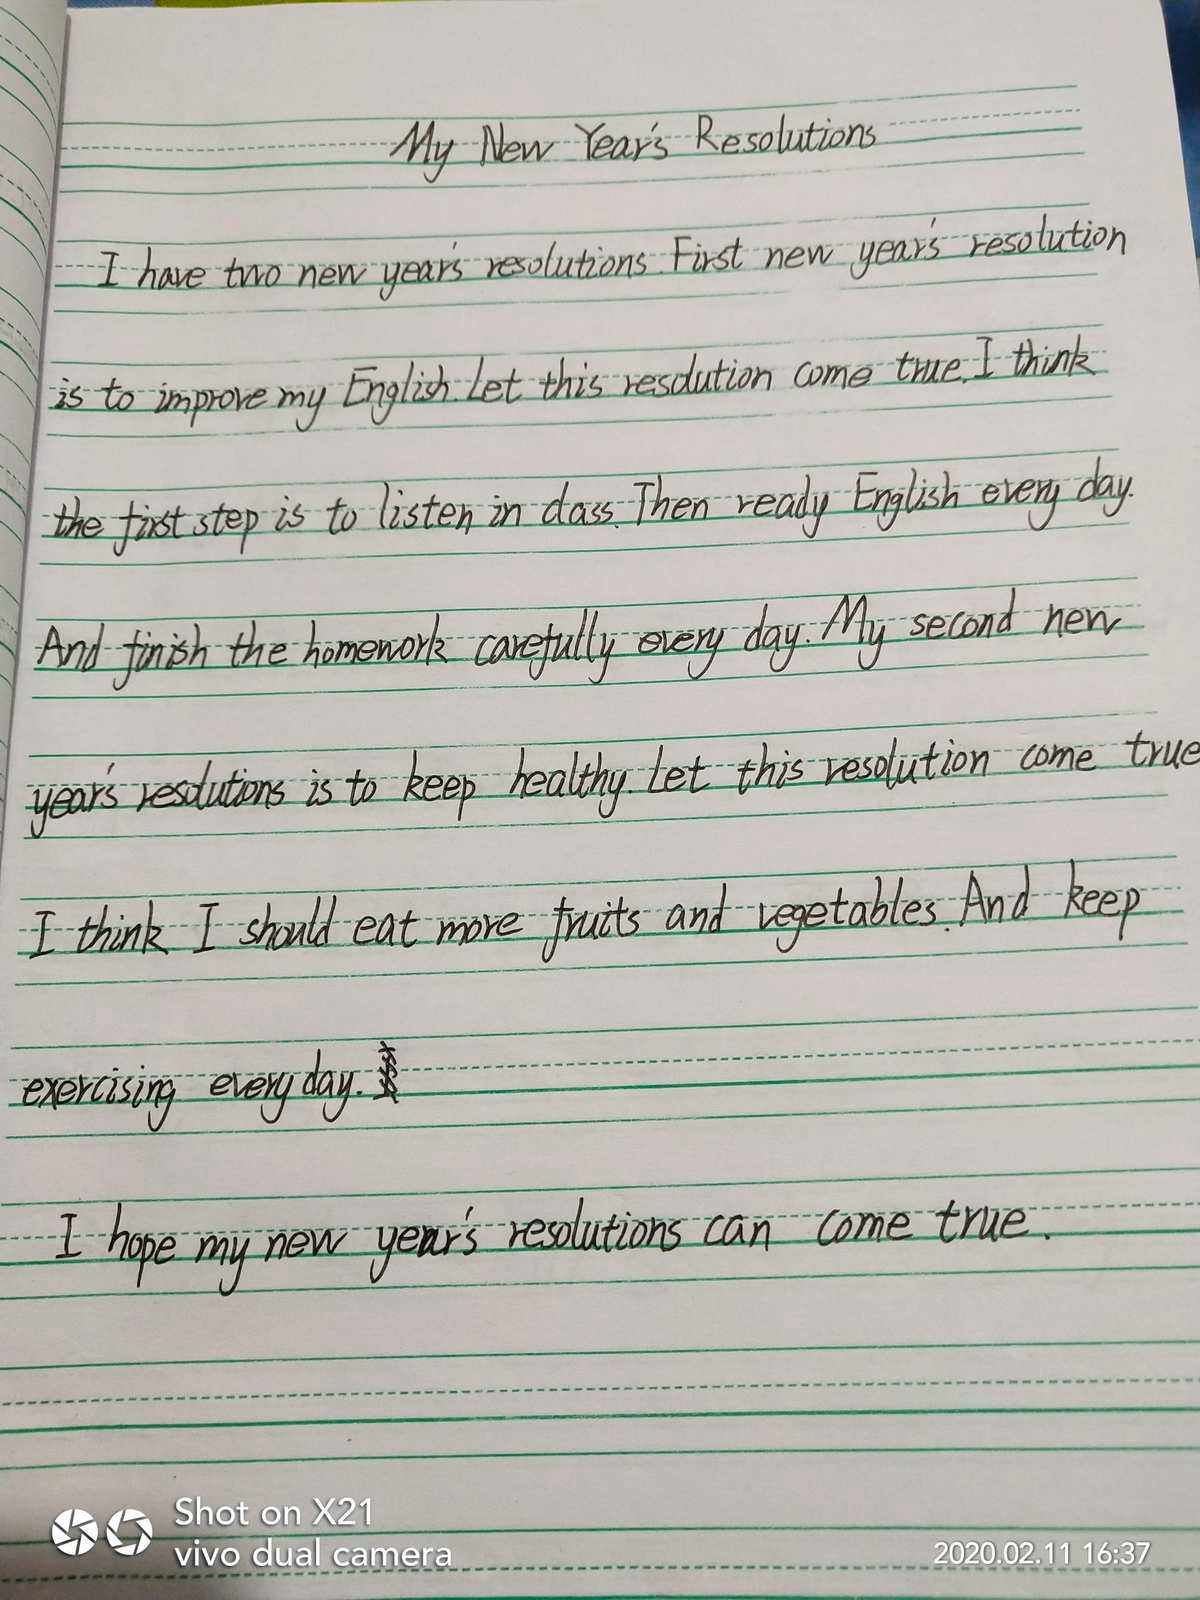 My New Year's Resolutions
I have two new year's resolutions. First new year's resolution
is to improve my English. Let this resolution come true. I think
the first step is to listen in class. Then ready English every day.
And finish the homework carefully every day. My second new
year's resolutions is to keep healthy. Let this resolution come true
I think I should eat more fruits and vegetables. And keep
exercising every day.
I hope my new year's resolutions can come true.
Shot on X21
vivo dual camera
2020.02.11 16:37